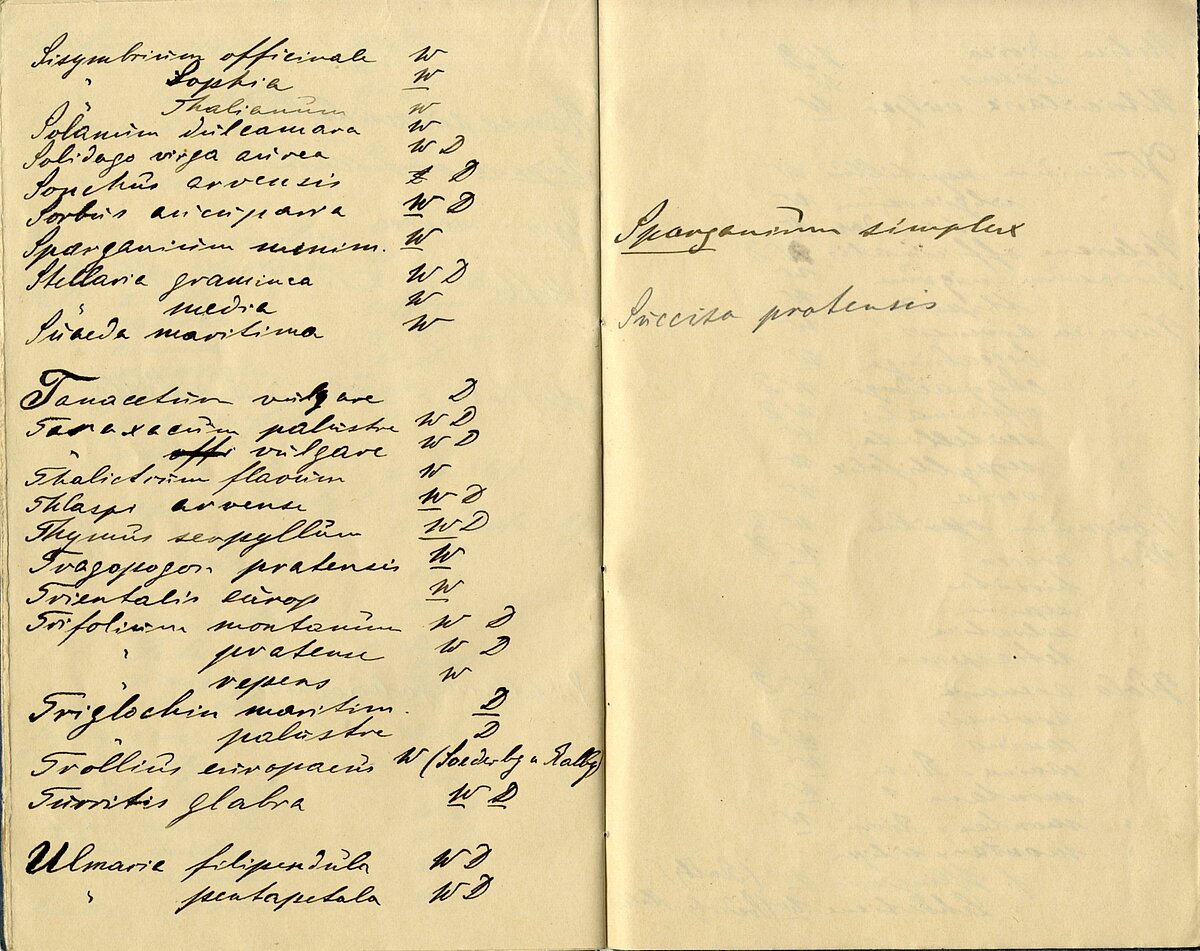 Sisymbrium officinale W
" Sophia W
" Thalianum W
Solanum dulcamara W
Solidago virga aurea W D
Sonchus arvensis D
Sorbus aucuparia W D
Sparganium minim. W
Stellaria graminea W D
" media W
Suaeda maritima W
Tanacetum vulgare D
Taraxacum palustre W D
" offi vulgare W D
Thalictrum flavum W
Thlaspi arvense W D
Thymus serpyllum W D
Tragopogon pratensis W
Trientalis europ W
Trifolium montanum W D
" pratense W D
" repens W
Triglochin maritim. D
palustre D
Trollius europaeus W (Soederbg u Rallbg)
Turritis glabra W D
Ulmaria filipendula W D
" pentapetala W D
Sparganium simplex
Succisa pratensis